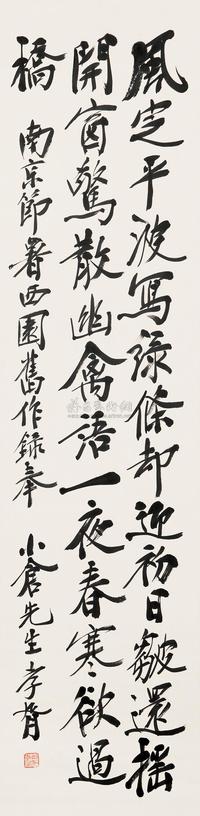 風定平波寫綠條却迎初日皺還搖
開窗驚散幽禽語一夜春寒欲過
橋 南京節署西園舊作録奉 小倉先生 孝胥